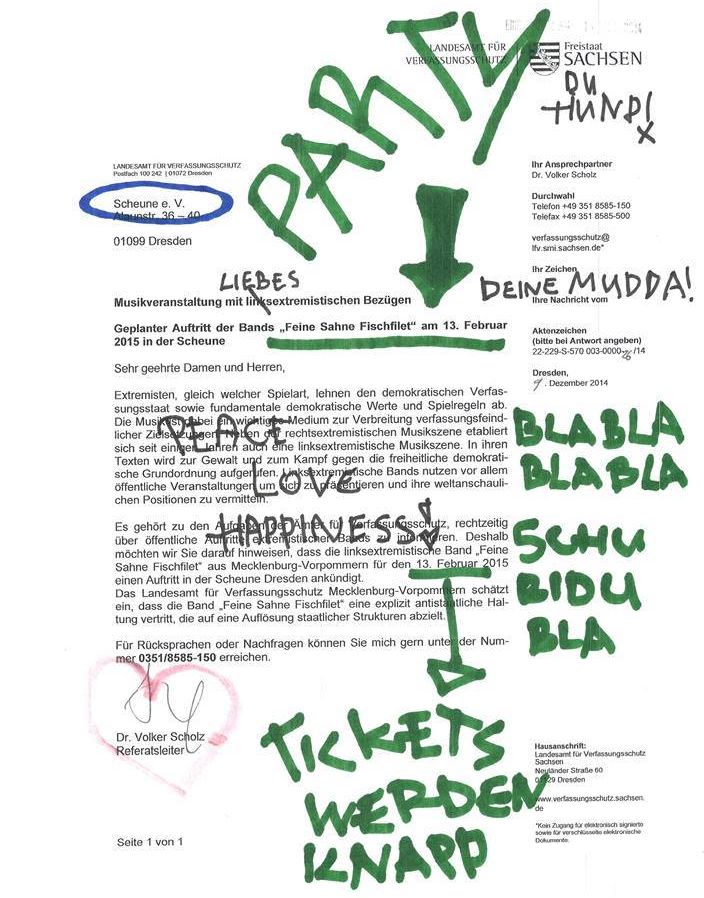 PARTY
LANDESAMT FÜR
VERFASSUNGSSCHUTZ
Freistaat
SACHSEN
DU
HUND!
x
LANDESAMT FÜR VERFASSUNGSSCHUTZ
Postfach 100 242 | 01072 Dresden
Scheune e. V.
Alaunstr. 36 – 40
01099 Dresden
Ihr Ansprechpartner
Dr. Volker Scholz
Durchwahl
Telefon +49 351 8585-150
Telefax +49 351 8585-500
verfassungsschutz@
lfv.smi.sachsen.de*
Ihr Zeichen
DEINE MUDDA!
Ihre Nachricht vom
Aktenzeichen
(bitte bei Antwort angeben)
22-229-S-570 003-0000- /14
Dresden,
9. Dezember 2014
LIEBES
Musikveranstaltung mit linksextremistischen Bezügen
Geplanter Auftritt der Bands „Feine Sahne Fischfilet“ am 13. Februar
2015 in der Scheune
Sehr geehrte Damen und Herren,
Extremisten, gleich welcher Spielart, lehnen den demokratischen Verfas-
sungsstaat sowie fundamentale demokratische Werte und Spielregeln ab.
Die Musik ist dabei ein wichtiges Medium zur Verbreitung verfassungsfeind-
licher Zielsetzungen. Neben der rechtsextremistischen Musikszene etabliert
sich seit einigen Jahren auch eine linksextremistische Musikszene. In ihren
Texten wird zur Gewalt und zum Kampf gegen die freiheitliche demokrati-
sche Grundordnung aufgerufen. Linksextremistische Bands nutzen vor allem
öffentliche Veranstaltungen um sich zu präsentieren und ihre weltanschauli-
chen Positionen zu vermitteln.
PEACE
LOVE
HAPPINESS
Es gehört zu den Aufgaben der Ämter für Verfassungsschutz, rechtzeitig
über öffentliche Auftritte extremistischer Bands zu informieren. Deshalb
möchten wir Sie darauf hinweisen, dass die linksextremistische Band „Feine
Sahne Fischfilet“ aus Mecklenburg-Vorpommern für den 13. Februar 2015
einen Auftritt in der Scheune Dresden ankündigt.
Das Landesamt für Verfassungsschutz Mecklenburg-Vorpommern schätzt
ein, dass die Band „Feine Sahne Fischfilet“ eine explizit antistaatliche Hal-
tung vertritt, die auf eine Auflösung staatlicher Strukturen abzielt.
Für Rücksprachen oder Nachfragen können Sie mich gern unter der Num-
mer 0351/8585-150 erreichen.
BLABLA
BLABLA
SCHU
BIDU
BLA
Dr. Volker Scholz
Referatsleiter
TICKETS
WERDEN
KNAPP
Hausanschrift:
Landesamt für Verfassungsschutz
Sachsen
Neuländer Straße 60
01129 Dresden
www.verfassungsschutz.sachsen.
de
*Kein Zugang für elektronisch signierte
sowie für verschlüsselte elektronische
Dokumente.
Seite 1 von 1